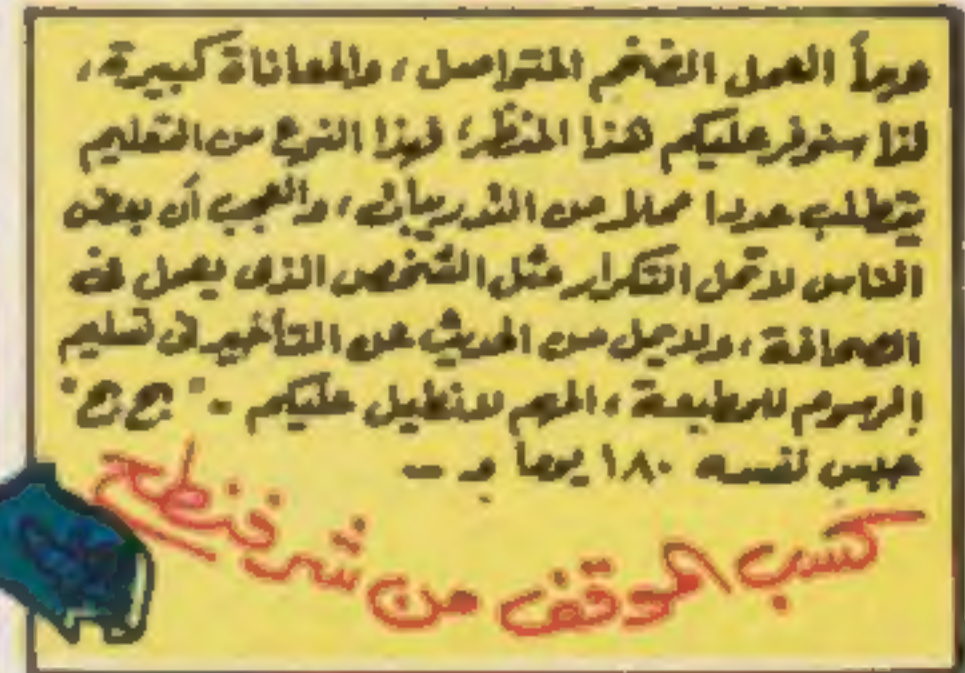 وبدأ العمل الضخم المتواصل، والمعاناة كبيرة،
لذا سنوفر عليكم هذا المنظر؛ فهذا النوع من التعليم
يتطلب عددا مملا من التدريبات، والعجيب أن بعض
الناس لا تمل التكرار مثل الشخص الذى يعمل فى
الصحافة، ولا يمل من الحديث عن التأخير فى تسليم
الرسوم للمطبعة، المهم لا نطيل عليكم -
حبس نفسه ١٨٠ يوماً و -
كسب الموقف من شرفنطح